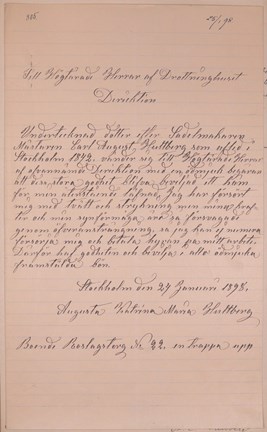 25/1 98
Till Högtärade Herrar af Drottninghuset
Direktion
Undertecknad dotter efter Sadelmakaren
Mästaren Carl August Hultberg som afled i
Stockholm 1892. vänder sig till Högtärade Herrar
af ofvannämde Direktion med en ödmjuk begäran
att den stora godhet blifva beviljad ett hem
för min återstående lefnad. Jag har försörjt
mig med tvätt och strykning men mina kraf-
ter och min synförmåga äro så försvagade
genom öfveransträngning så jag kan ej numera
försörja mig och betala hyran på mitt arbete.
Därför haf godheten och bevilja i allo ödmjuka
framstälda bön.
Stockholm den 24 Januari 1898.
Augusta Katrina Maria Hultberg
Boende Roslagstorg No 22. en trappa upp